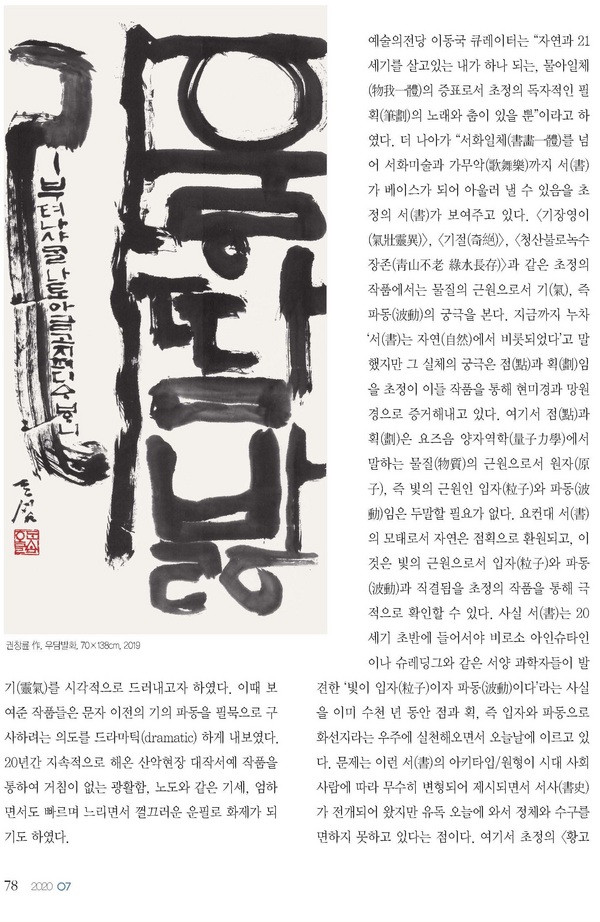 권창륜 作, 우담별화, 70×138cm, 2019
기(靈氣)를 시각적으로 드러내고자 하였다. 이때 보
여준 작품들은 문자 이전의 기의 파동을 필묵으로 구
사하려는 의도를 드라마틱(dramatic) 하게 내보였다.
20년간 지속적으로 해온 산악현장 대작서예 작품을
통하여 거침이 없는 광활함, 노도와 같은 기세, 엄하
면서도 빠르며 느리면서 껄끄러운 운필로 화제가 되
기도 하였다.
예술의전당 이동국 큐레이터는 “자연과 21
세기를 살고있는 내가 하나 되는, 물아일체
(物我一體)의 증표로서 초정의 독자적인 필
획(筆劃)의 노래와 춤이 있을 뿐”이라고 하
였다. 더 나아가 “서화일체(書畵一體)를 넘
어 서화미술과 가무악(歌舞樂)까지 서(書)
가 베이스가 되어 아울러 낼 수 있음을 초
정의 서(書)가 보여주고 있다. 〈기장영이
(氣壯靈異)〉, 〈기절(奇絕)〉, 〈청산불로녹수
장존(靑山不老 綠水長存)〉과 같은 초정의
작품에서는 물질의 근원으로서 기(氣), 즉
파동(波動)의 궁극을 본다. 지금까지 누차
‘서(書)는 자연(自然)에서 비롯되었다’고 말
했지만 그 실체의 궁극은 점(點)과 획(劃)임
을 초정이 이들 작품을 통해 현미경과 망원
경으로 증거해내고 있다. 여기서 점(點)과
획(劃)은 요즈음 양자역학(量子力學)에서
말하는 물질(物質)의 근원으로서 원자(原
子), 즉 빛의 근원인 입자(粒子)와 파동(波
動)임은 두말할 필요가 없다. 요컨대 서(書)
의 모태로서 자연은 점획으로 환원되고, 이
것은 빛의 근원으로서 입자(粒子)와 파동
(波動)과 직결됨을 초정의 작품을 통해 극
적으로 확인할 수 있다. 사실 서(書)는 20
세기 초반에 들어서야 비로소 아인슈타인
이나 슈레딩그와 같은 서양 과학자들이 발
견한 ‘빛이 입자(粒子)이자 파동(波動)이다’라는 사실
을 이미 수천 년 동안 점과 획, 즉 입자와 파동으로
화선지라는 우주에 실천해오면서 오늘날에 이르고 있
다. 문제는 이런 서(書)의 아키타입/원형이 시대 사회
사람에 따라 무수히 변형되어 제시되면서 서사(書史)
가 전개되어 왔지만 유독 오늘에 와서 정체와 수구를
면하지 못하고 있다는 점이다. 여기서 초정의 〈황고
78 2020 07